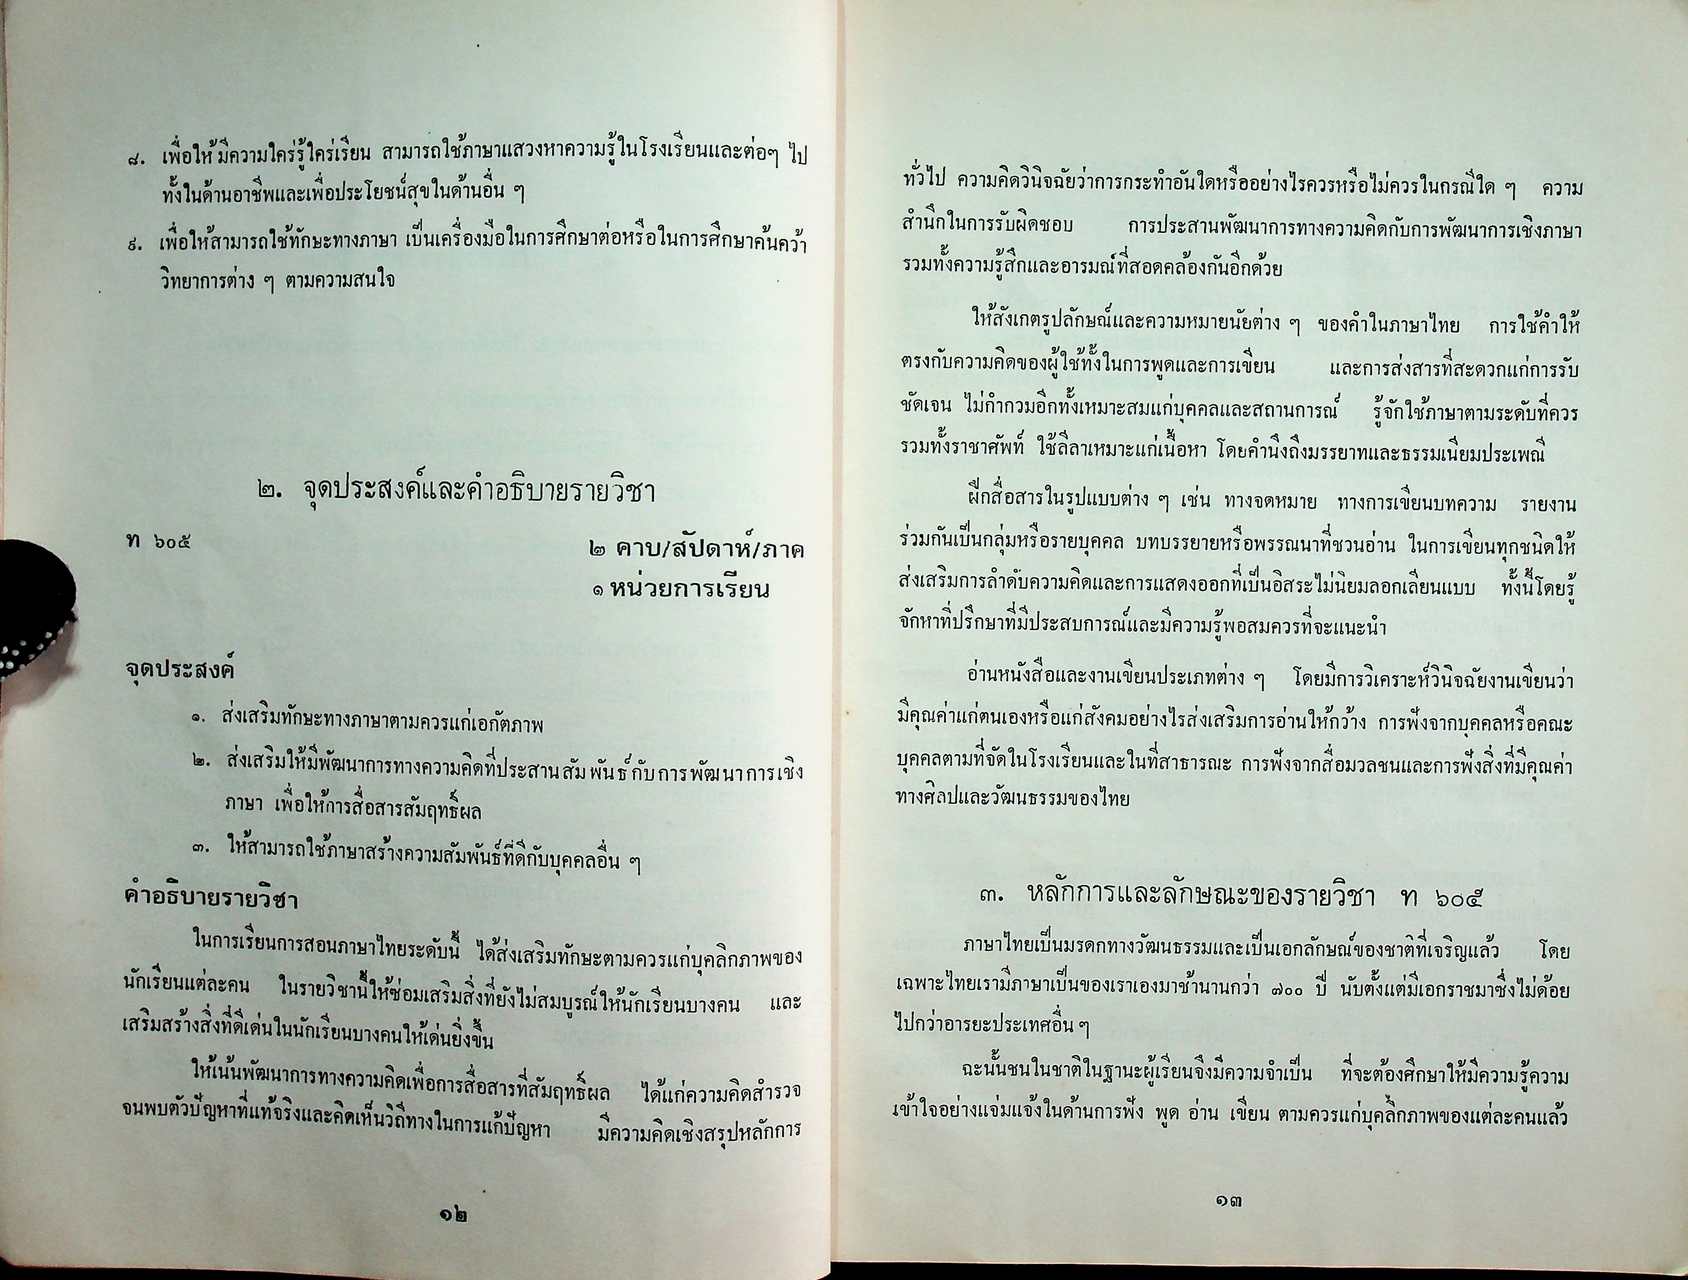 ๘. เพื่อให้มีความใคร่รู้ใคร่เรียน สามารถใช้ภาษาแสวงหาความรู้ในโรงเรียนและต่อๆ ไป
ทั้งในด้านอาชีพและเพื่อประโยชน์สุขในด้านอื่น ๆ
๙. เพื่อให้สามารถใช้ทักษะทางภาษา เป็นเครื่องมือในการศึกษาต่อหรือในการศึกษาค้นคว้า
วิทยาการต่าง ๆ ตามความสนใจ
๒. จุดประสงค์และคำอธิบายรายวิชา
ท ๖๐๕
๒ คาบ/สัปดาห์/ภาค
๑ หน่วยการเรียน
จุดประสงค์
๑. ส่งเสริมทักษะทางภาษาตามควรแก่เอกัตภาพ
๒. ส่งเสริมให้มีพัฒนาการทางความคิดที่ประสานสัมพันธ์กับการพัฒนาการเชิง
ภาษา เพื่อให้การสื่อสารสัมฤทธิ์ผล
๓. ให้สามารถใช้ภาษาสร้างความสัมพันธ์ที่ดีกับบุคคลอื่น ๆ
คำอธิบายรายวิชา
ในการเรียนการสอนภาษาไทยระดับนี้ ได้ส่งเสริมทักษะตามควรแก่บุคลิกภาพของ
นักเรียนแต่ละคน ในรายวิชานี้ให้ซ่อมเสริมสิ่งที่ยังไม่สมบูรณ์ให้นักเรียนบางคน และ
เสริมสร้างสิ่งที่ดีเด่นในนักเรียนบางคนให้เด่นยิ่งขึ้น
ให้เน้นพัฒนาการทางความคิดเพื่อการสื่อสารที่สัมฤทธิ์ผล ได้แก่ความคิดสำรวจ
จนพบตัวปัญหาที่แท้จริงและคิดเห็นวิถีทางในการแก้ปัญหา มีความคิดเชิงสรุปหลักการ
๑๒
ทั่วไป ความคิดวินิจฉัยว่าการกระทำอันใดหรืออย่างไรควรหรือไม่ควรในกรณีใด ๆ ความ
สำนึกในการรับผิดชอบ การประสานพัฒนาการทางความคิดกับการพัฒนาการเชิงภาษา
รวมทั้งความรู้สึกและอารมณ์ที่สอดคล้องกันอีกด้วย
ให้สังเกตรูปลักษณ์และความหมายนัยต่าง ๆ ของคำในภาษาไทย การใช้คำให้
ตรงกับความคิดของผู้ใช้ทั้งในการพูดและการเขียน และการส่งสารที่สะดวกแก่การรับ
ชัดเจน ไม่กำกวมอีกทั้งเหมาะสมแก่บุคคลและสถานการณ์ รู้จักใช้ภาษาตามระดับที่ควร
รวมทั้งราชาศัพท์ ใช้ลีลาเหมาะแก่เนื้อหา โดยคำนึงถึงมรรยาทและธรรมเนียมประเพณี
ฝึกสื่อสารในรูปแบบต่าง ๆ เช่น ทางจดหมาย ทางการเขียนบทความ รายงาน
ร่วมกันเป็นกลุ่มหรือรายบุคคล บทบรรยายหรือพรรณนาที่ชวนอ่าน ในการเขียนทุกชนิดให้
ส่งเสริมการลำดับความคิดและการแสดงออกที่เป็นอิสระไม่นิยมลอกเลียนแบบ ทั้งนี้โดยรู้
จักหาที่ปรึกษาที่มีประสบการณ์และมีความรู้พอสมควรที่จะแนะนำ
อ่านหนังสือและงานเขียนประเภทต่าง ๆ โดยมีการวิเคราะห์วินิจฉัยงานเขียนว่า
มีคุณค่าแก่ตนเองหรือแก่สังคมอย่างไรส่งเสริมการอ่านให้กว้าง การฟังจากบุคคลหรือคณะ
บุคคลตามที่จัดในโรงเรียนและในที่สาธารณะ การฟังจากสื่อมวลชนและการฟังสิ่งที่มีคุณค่า
ทางศิลปและวัฒนธรรมของไทย
๓. หลักการและลักษณะของรายวิชา ท ๖๐๕
ภาษาไทยเป็นมรดกทางวัฒนธรรมและเป็นเอกลักษณ์ของชาติที่เจริญแล้ว โดย
เฉพาะไทยเรามีภาษาเป็นของเราเองมาช้านานกว่า ๗๐๐ ปี นับตั้งแต่มีเอกราชมาซึ่งไม่ด้อย
ไปกว่าอารยะประเทศอื่น ๆ
ฉะนั้นชนในชาติในฐานะผู้เรียนจึงมีความจำเป็น ที่จะต้องศึกษาให้มีความรู้ความ
เข้าใจอย่างแจ่มแจ้งในด้านการฟัง พูด อ่าน เขียน ตามควรแก่บุคลิกภาพของแต่ละคนแล้ว
๑๓